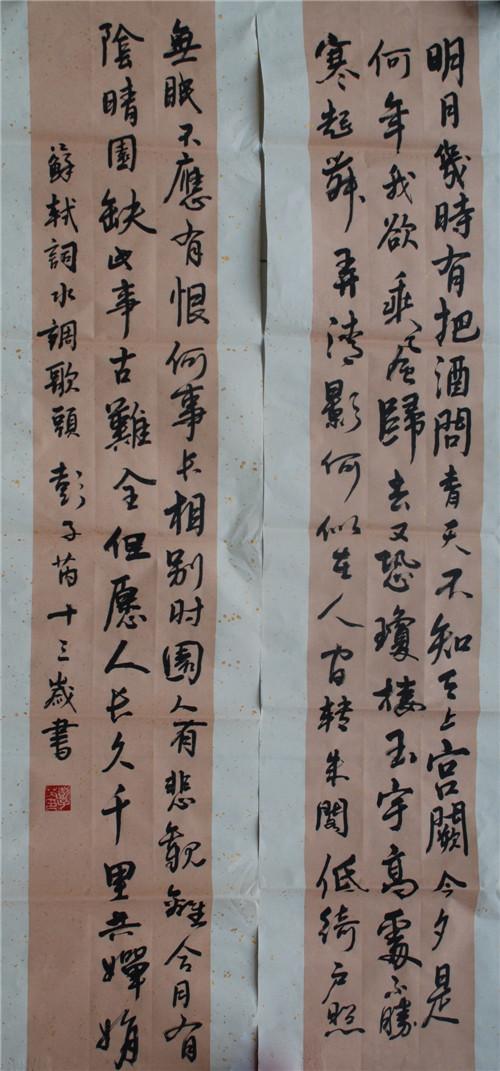 明月幾時有把酒問青天不知天上宮闕今夕是
何年我欲乘風歸去又恐瓊樓玉宇高處不勝
寒起舞弄清影何似在人間轉朱閣低綺户照
無眠不應有恨何事长相别时圓人有悲歡離合月有
陰晴圓缺此事古難全但愿人长久千里共嬋娟
蘇軾詞水調歌頭 彭子芮十三歲書